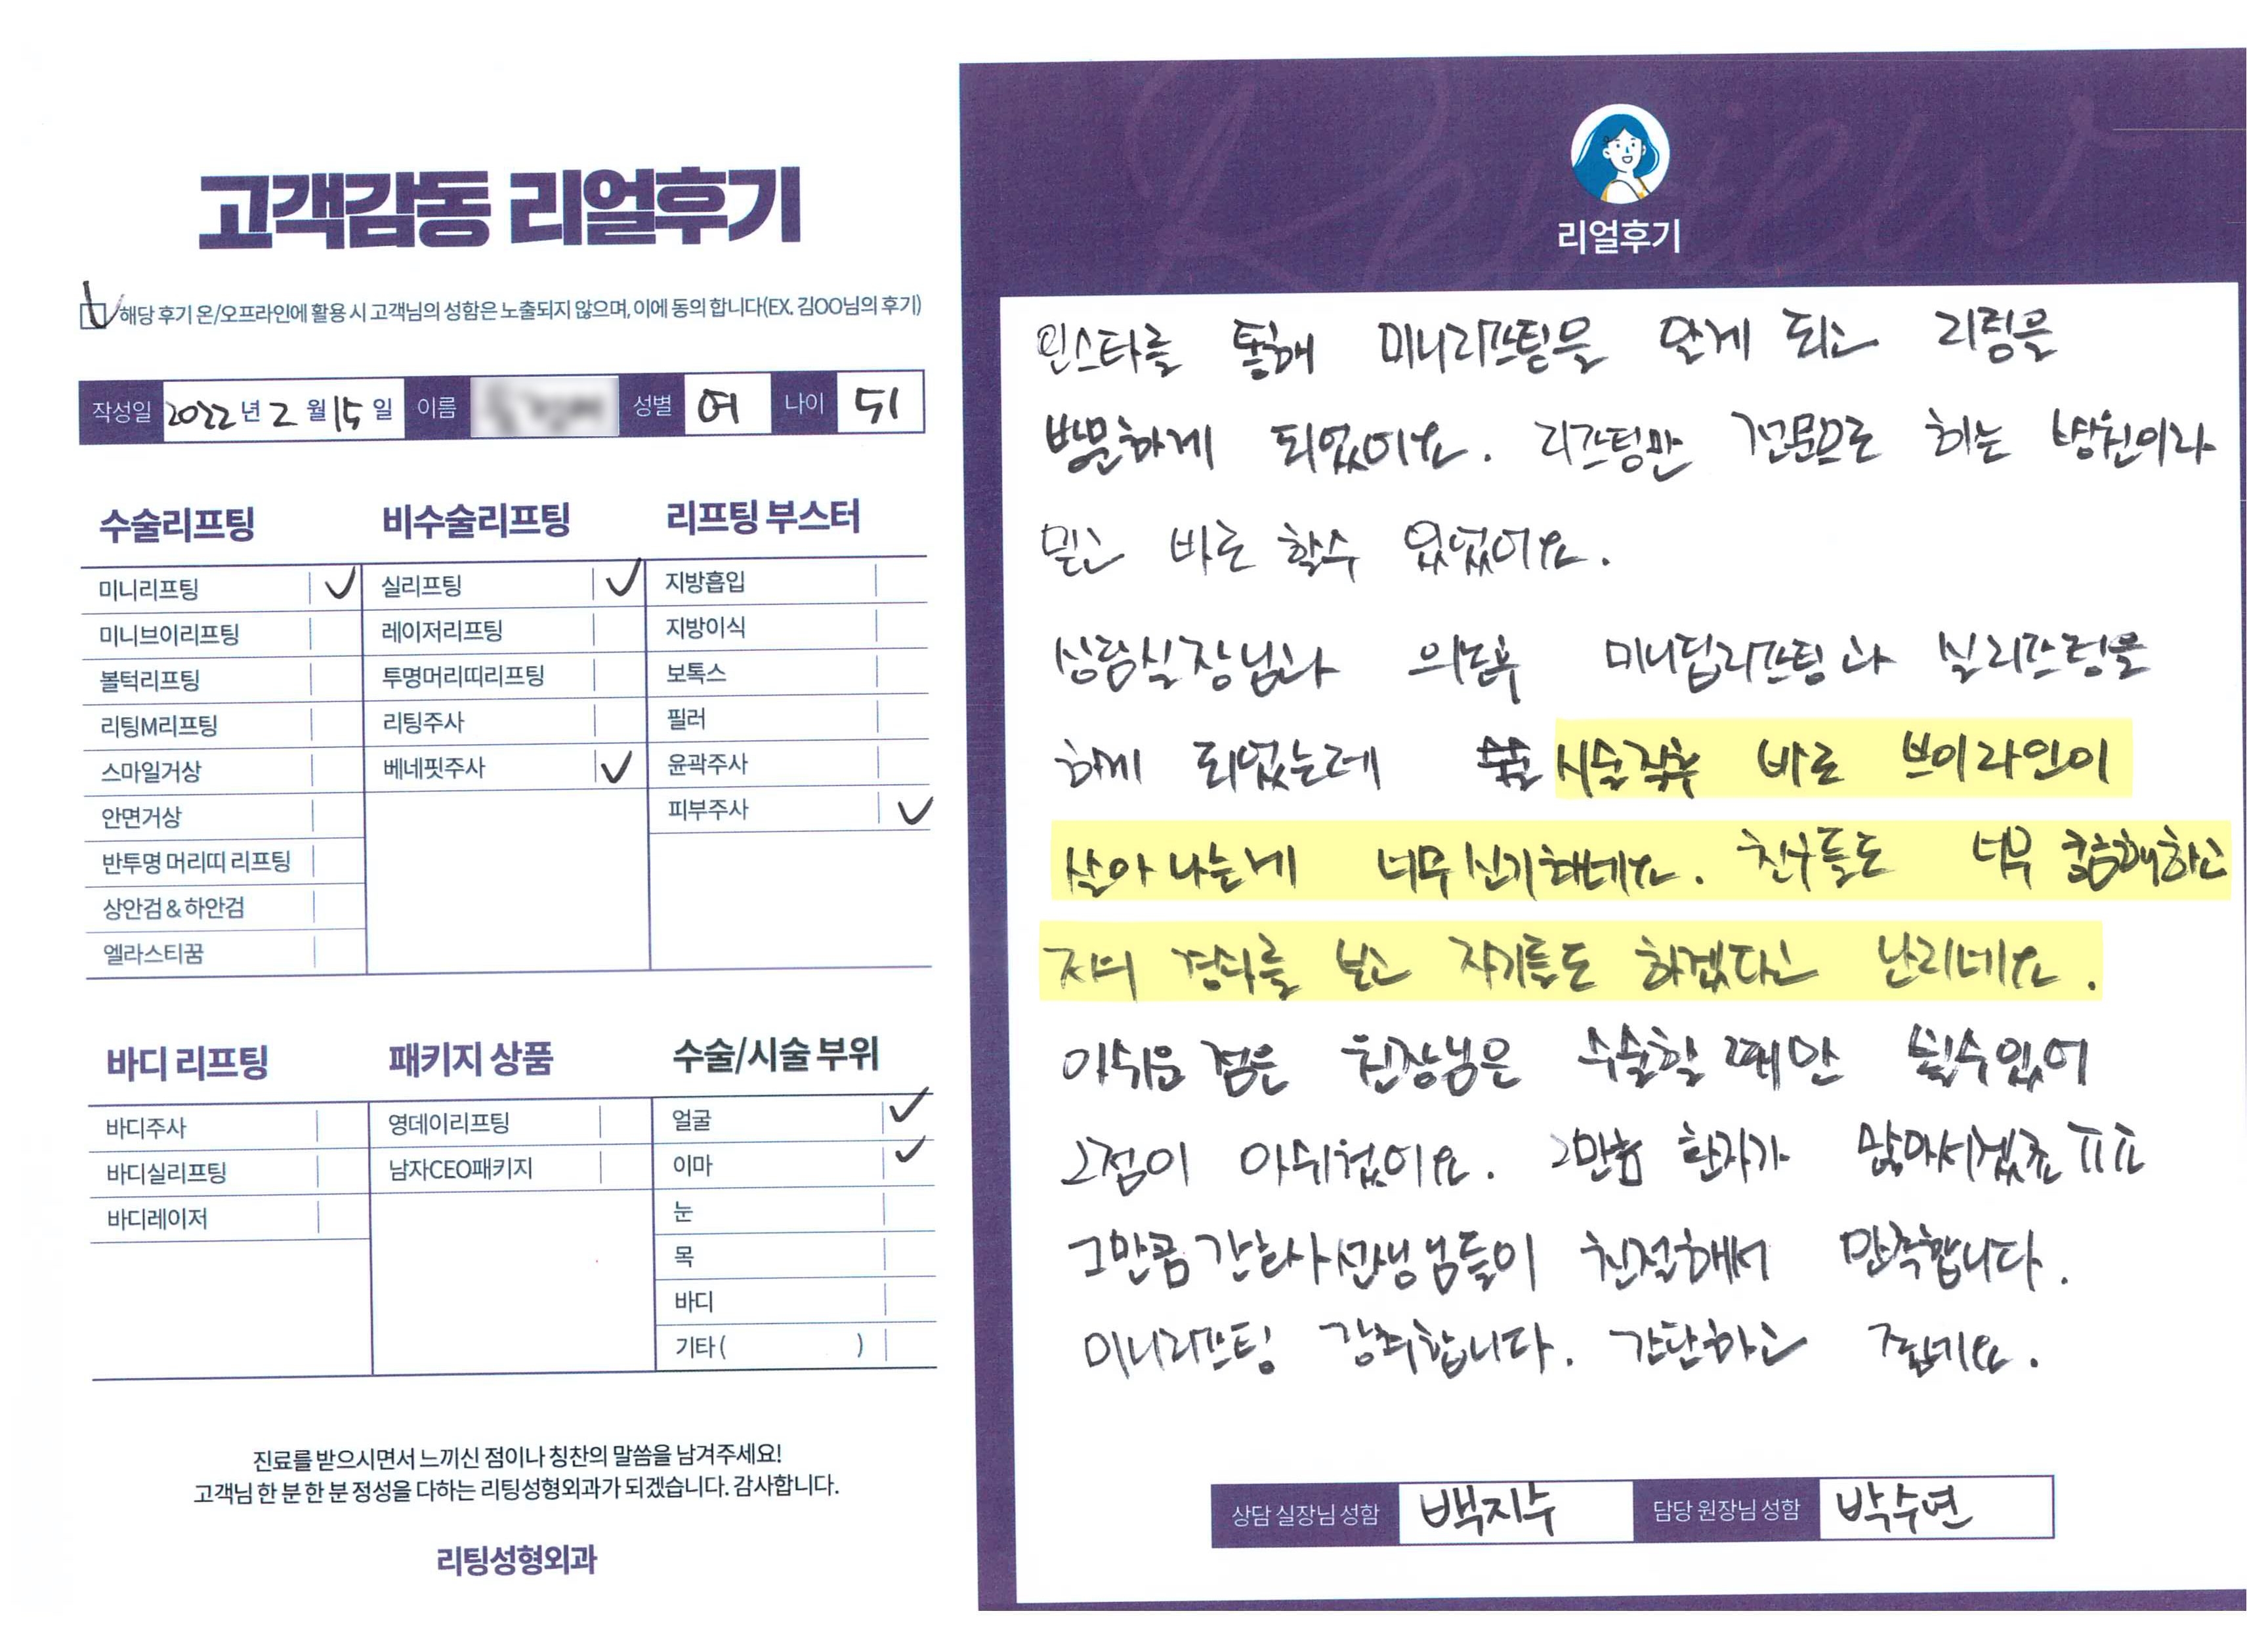 고객감동 리얼후기
해당 후기 온/오프라인에 활용 시 고객님의 성함은 노출되지 않으며, 이에 동의 합니다(EX. 김OO님의 후기)
작성일 2022년 2월 15일 이름 성별 여 나이 51
수술리프팅 비수술리프팅 리프팅 부스터
미니리프팅 실리프팅 지방흡입
미니브이리프팅 레이저리프팅 지방이식
볼턱리프팅 투명머리띠리프팅 보톡스
리팅M리프팅 리팅주사 필러
스마일거상 베네핏주사 윤곽주사
안면거상 피부주사
반투명 머리띠 리프팅
상안검 & 하안검
엘라스티꿈
바디 리프팅 패키지 상품 수술/시술 부위
바디주사 영데이리프팅 얼굴
바디실리프팅 남자CEO패키지 이마
바디레이저 눈
목
바디
기타 ( )
진료를 받으시면서 느끼신 점이나 칭찬의 말씀을 남겨주세요!
고객님 한 분 한 분 정성을 다하는 리팅성형외과가 되겠습니다. 감사합니다.
리팅성형외과
Review
리얼후기
인스타를 통해 미니리프팅을 알게 되고 리팅을
방문하게 되었어요. 리프팅만 전문으로 하는 병원이라
믿고 바로 할수 있었어요.
상담실장님과 의논후 미니딥리프팅과 실리프팅을
하게 되었는데 시술직후 바로 브이라인이
살아나는게 너무 신기하네요. 친구들도 너무 궁금해하고
저의 경과를 보고 자기들도 하겠다고 난리네요.
아쉬운 점은 원장님은 수술할 때만 뵐수있어
그점이 아쉬웠어요. 그만큼 환자가 많아서겠죠 ㅠㅠ
그만큼 간호사선생님들이 친절해서 만족합니다.
미니리프팅 강추합니다. 간단하고 좋네요.
상담 실장님 성함 백지수 담당 원장님 성함 박수연